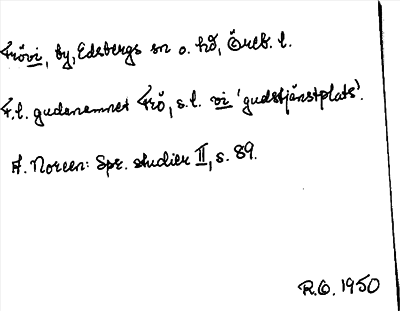 Frövi, by, Edsbergs sn o. hd, Öreb. l.
F.l. gudanamnet Frö, s.l. vi 'gudstjänstplats'.
A. Noreen: Spr. studier II, s. 89.
R.O. 1950